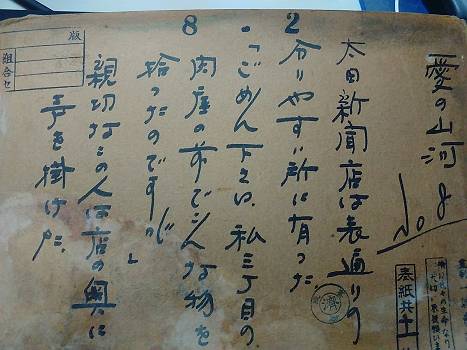 愛の山河
108
太田新聞店は表通りの
分りやすい所に有った
「ごめん下さい、私三丁目の
肉屋の前でこんな物を
拾ったのですが」
親切なこの人は店の奥に
声を掛けた
2
8
版
組合せ
済
表紙共